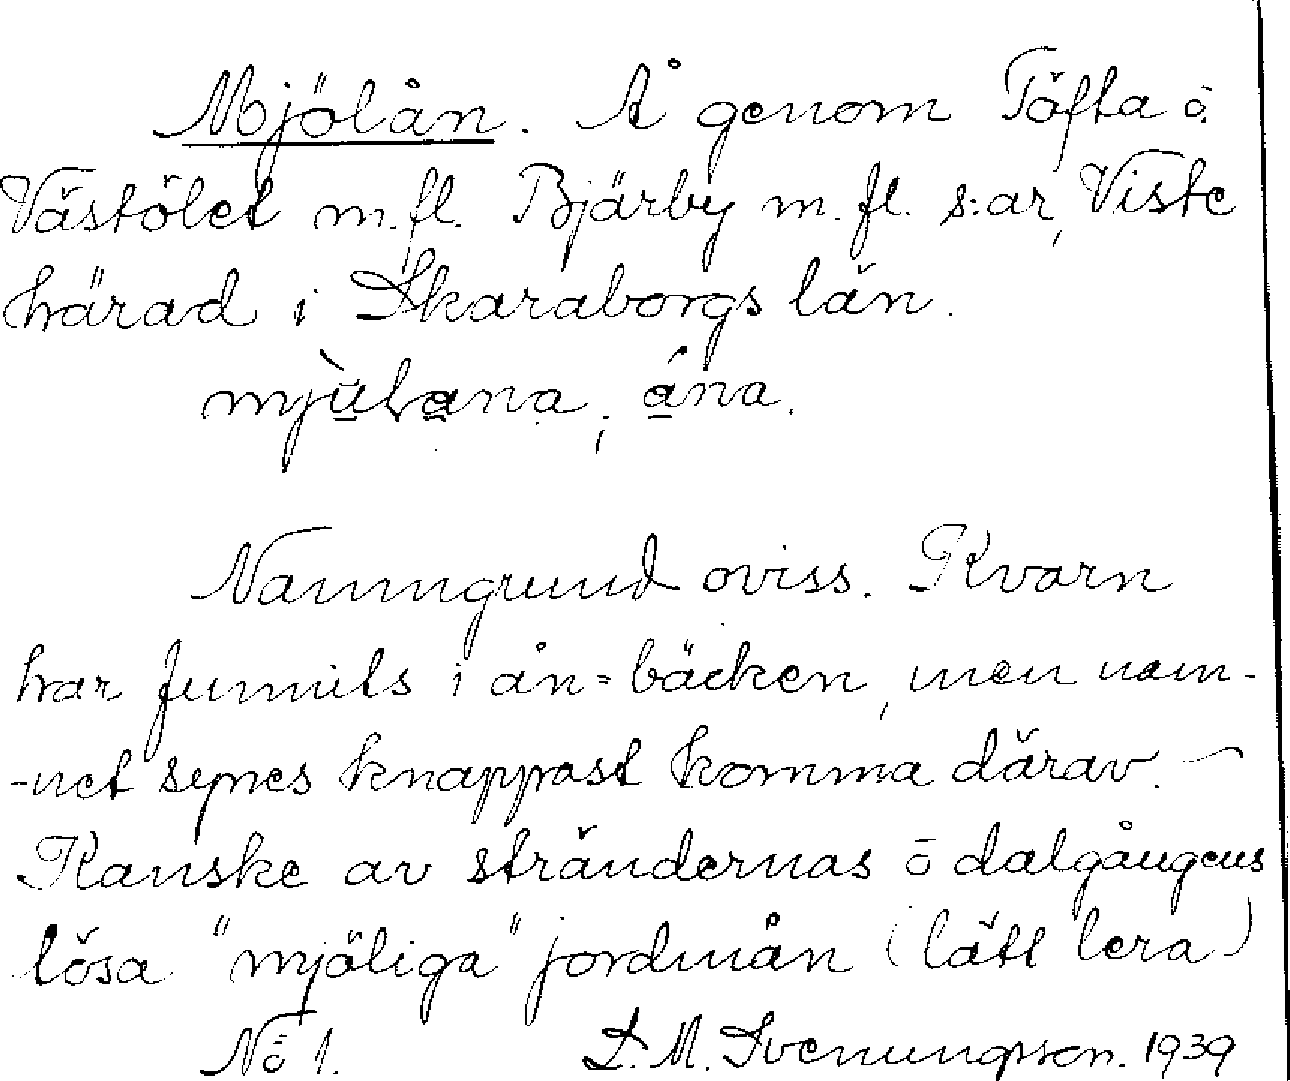 Mjölån. Å genom Töfta ō
Västölet m.fl. Bjärby m.fl. s:ar, Viste
härad i Skaraborgs län.
mjùlana, ána.
Namngrund oviss. Kvarn
har funnits i ån = bäcken, men nam-
-net synes knappast komma därav. –
Kanske av strändernas ō dalgångens
lösa "mjöliga" jordmån (lätt lera)
No 1. S. M. Svenungsson. 1939